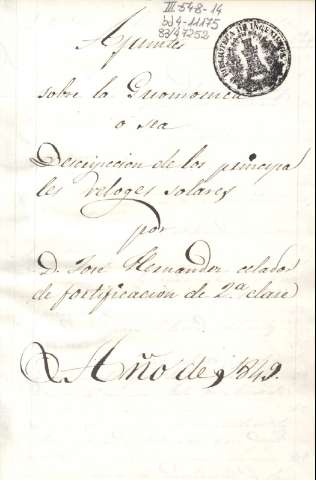 III-548-14
bd4-11175
83/47252
BIBLIOTECA DE INGENIEROS
Apuntes
sobre la Gnomonica
o sea
Descripcion de los principa
les reloges solares
por
D. José Hernandez celador
de fortificacion de 2.a clase
Año de 1849.